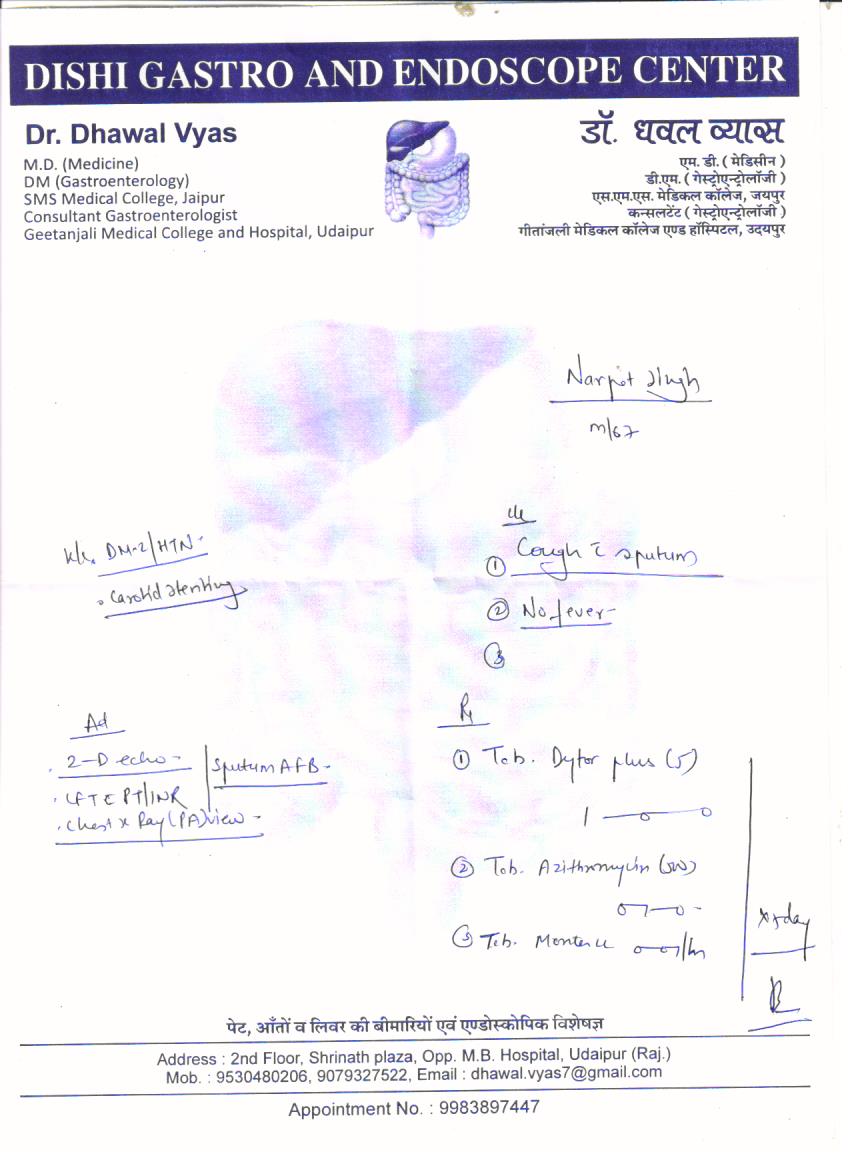 DISHI GASTRO AND ENDOSCOPE CENTER
Dr. Dhawal Vyas
M.D. (Medicine)
DM (Gastroenterology)
SMS Medical College, Jaipur
Consultant Gastroenterologist
Geetanjali Medical College and Hospital, Udaipur
डॉ. धवल व्यास
एम. डी. ( मेडिसीन )
डी.एम. ( गेस्ट्रोएन्ट्रोलॉजी )
एस.एम.एस. मेडिकल कॉलेज, जयपुर
कन्सलटेंट ( गेस्ट्रोएन्ट्रोलॉजी )
गीतांजली मेडिकल कॉलेज एण्ड हॉस्पिटल, उदयपुर
Narpat Singh
M/67
DM-2/HTN
Carotid stenting
① Cough c̄ sputum
② No fever
③
Ad
2-D echo
LFT c̄ PT/INR
Chest x Ray (PA) view
Sputum AFB
Rx
① Tab. Dytor plus (5)
1 — 0 — 0
② Tab. Azithromycin (500)
③ Tab.
पेट, आँतों व लिवर की बीमारियों एवं एण्डोस्कोपिक विशेषज्ञ
Address : 2nd Floor, Shrinath plaza, Opp. M.B. Hospital, Udaipur (Raj.)
Mob. : 9530480206, 9079327522, Email : dhawal.vyas7@gmail.com
Appointment No. : 9983897447